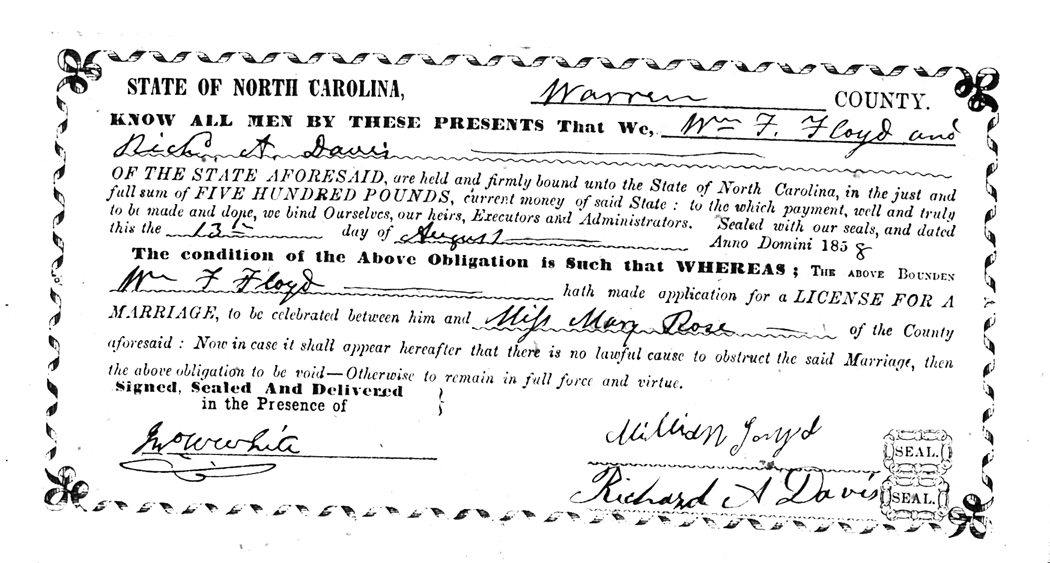 STATE OF NORTH CAROLINA, Warren COUNTY.
KNOW ALL MEN BY THESE PRESENTS That We, Wm F. Floyd and
Richd. A. Davis
OF THE STATE AFORESAID, are held and firmly bound unto the State of North Carolina, in the just and
full sum of FIVE HUNDRED POUNDS, current money of said State: to the which payment, well and truly
to be made and done, we bind Ourselves, our heirs, Executors and Administrators. Sealed with our seals, and dated
this the 13th day of August Anno Domini 1858
The condition of the Above Obligation is Such that WHEREAS; THE ABOVE BOUNDEN
Wm F Floyd hath made application for a LICENSE FOR A
MARRIAGE, to be celebrated between him and Miss Mary Rose of the County
aforesaid: Now in case it shall appear hereafter that there is no lawful cause to obstruct the said Marriage, then
the above obligation to be void—Otherwise to remain in full force and virtue.
Signed, Sealed And Delivered
in the Presence of
Jno W White
Floyd SEAL.
Richard A Davis SEAL.